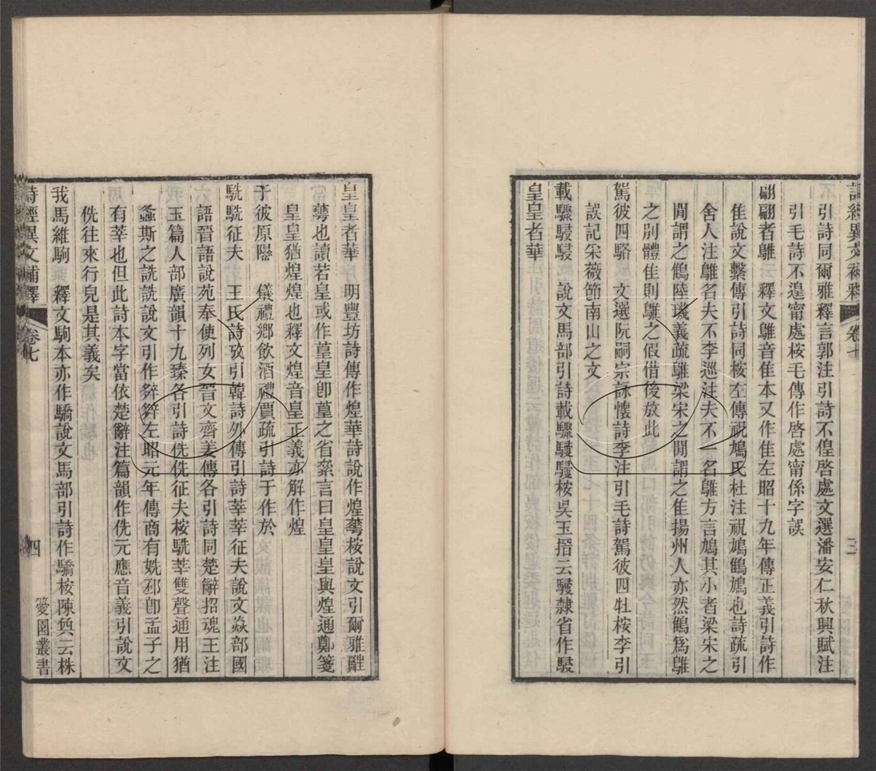 詩經異文補釋 卷七 三
引詩同爾雅釋言郭注引詩不偟啓處文選潘安仁秋興賦注
引毛詩不遑甯處桉毛傳作啓處甯係字誤
翩翩者鵻 釋文鵻音隹本又作隹左昭十九年傳正義引詩作
隹說文繫傳引詩同桉左傳祝鳩氏杜注祝鳩鶻鳩也詩疏引
舍人注鵻名夫不李巡注夫不一名鵻方言鳩其小者梁宋之
閒謂之鶴陸璣義疏鵻梁宋之閒謂之隹揚州人亦然鶴爲鵻
之別體隹則鵻之假借後放此
駕彼四駱 文選阮嗣宗詠懷詩李注引毛詩駕彼四牡桉李引
誤記采薇節南山之文
載驟駸駸 說文馬部引詩載驟駸駸桉吳玉搢云駸隸省作駸
皇皇者華
皇皇者華 明豐坊詩傳作煌華詩說作煌蕚桉說文引爾雅雞
蕚也讀若皇或作葟皇卽葟之省棻言曰皇皇皇與煌通鄭箋
皇皇猶煌煌也釋文煌音皇正義亦解作煌
于彼原隰 儀禮鄉飲酒禮賈疏引詩于作於
駪駪征夫 王氏詩攷引韓詩外傳引詩莘莘征夫說文焱部國
語晉語說苑奉使列女晉文齊姜傳各引詩同楚辭招魂王注
玉篇人部廣韻十九臻各引詩侁侁征夫桉駪莘雙聲通用猶
螽斯之詵詵說文引作辡辡左昭元年傳商有姺邳卽孟子之
有莘也但此詩本字當依楚辭注篇韻作侁元應音義引說文
侁往來行皃是其義矣
我馬維駒 釋文駒本亦作驕說文馬部引詩作驕桉陳奐云株
詩經異文補釋 卷七 四 㤅園叢書